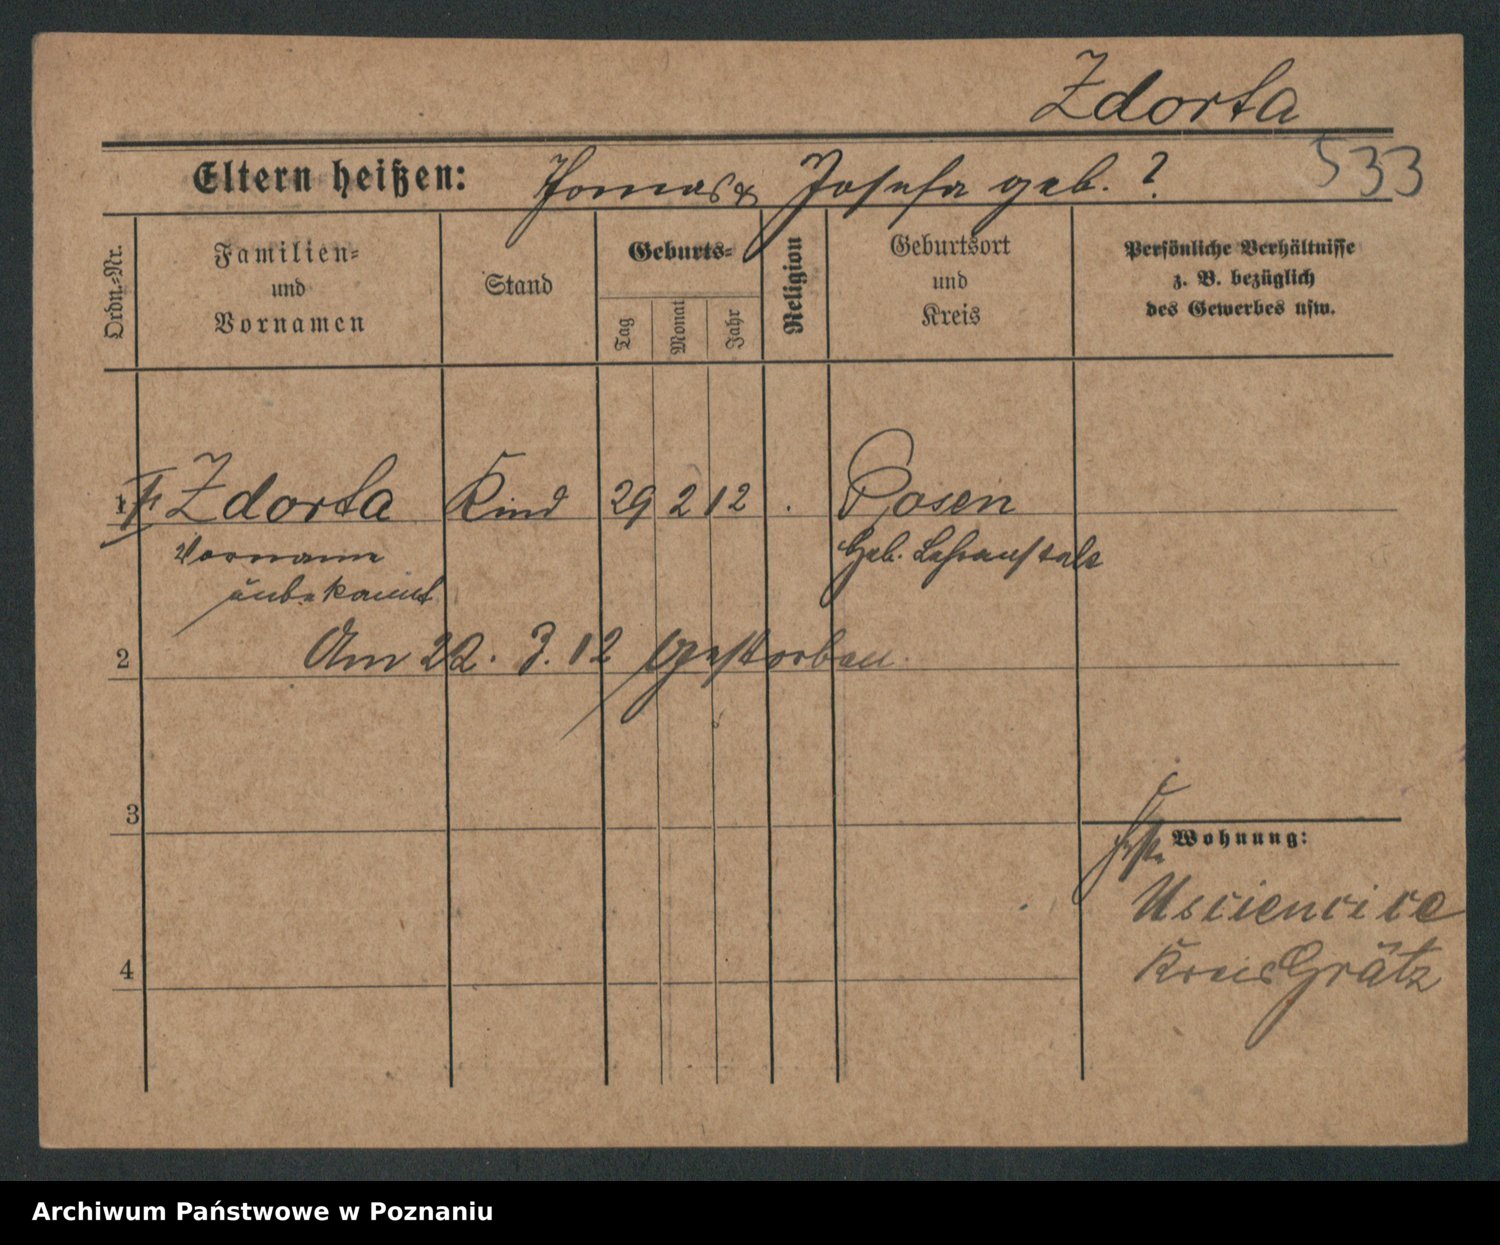 Zdorta
533
Eltern heißen: Thomas & Josefa geb. ?
Ordn.-Nr.
Familien- und Vornamen
Stand
Geburts-
Tag
Monat
Jahr
Religion
Geburtsort und Kreis
Persönliche Verhältnisse z. B. bezüglich des Gewerbes usw.
1 Zdorta Kind 29 2 12 . Posen
Vorname Geb. Lehranstalt
unbekannt
2 Am 22. 3. 12 gestorben.
3
Wohnung:
Usciencice
4 Kreis Grätz
Archiwum Państwowe w Poznaniu